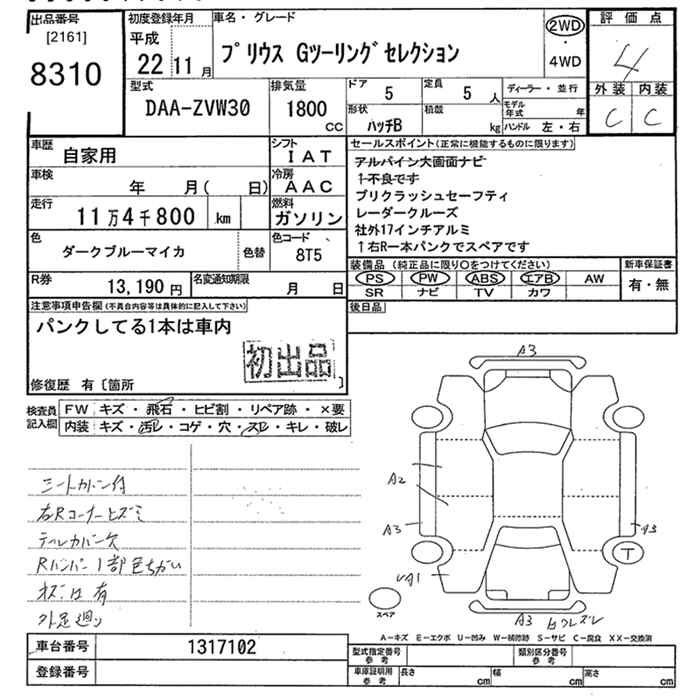 出品番号
[2161]
8310
初度登録年月
平成
22 11 月
車名・グレード
プリウス Gツーリングセレクション
2WD
・
4WD
評価点
4
外装 内装
C C
型式
DAA-ZVW30
排気量
1800
CC
ドア
5
定員
5 人
形状
ハッチB
積載
kg
ディーラー・並行
モデル年式 年
ハンドル 左・右
車歴
自家用
シフト
IAT
車検
年 月( 日)
冷房
AAC
走行
11万4千800 km
燃料
ガソリン
色
ダークブルーマイカ
色替
色コード
8T5
R券
13,190 円
名変通知期限
月 日
セールスポイント(正常に機能するものに限ります)
アルパイン大画面ナビ
1不良です
プリクラッシュセーフティ
レーダークルーズ
社外17インチアルミ
1右R一本パンクでスペアです
装備品(純正品に限り○をつけてください)
PS PW ABS エアB AW
SR ナビ TV カワ
新車保証書
有・無
後日品
注意事項申告欄(不具合内容等は具体的に記入して下さい)
パンクしてる1本は車内
初出品
修復歴 有〔箇所 〕
検査員記入欄
FW キズ・飛石・ヒビ割・リペア跡・×要
内装 キズ・汚レ・コゲ・穴・スレ・キレ・破レ
シートカバー付
右Rコーナーヒズミ
テールカバー欠
Rバンパー1部色ちがい
オズレ有
外足廻り
A3
A2
A3
A3
T
A1
スペア
A3
A-キズ E-エクボ U-凹み W-補修跡 S-サビ C-腐食 XX-交換済
車台番号
1317102
登録番号
型式指定番号
参考
類別区分番号
参考
車庫証明用
参考
長さ cm
幅 cm
高さ cm